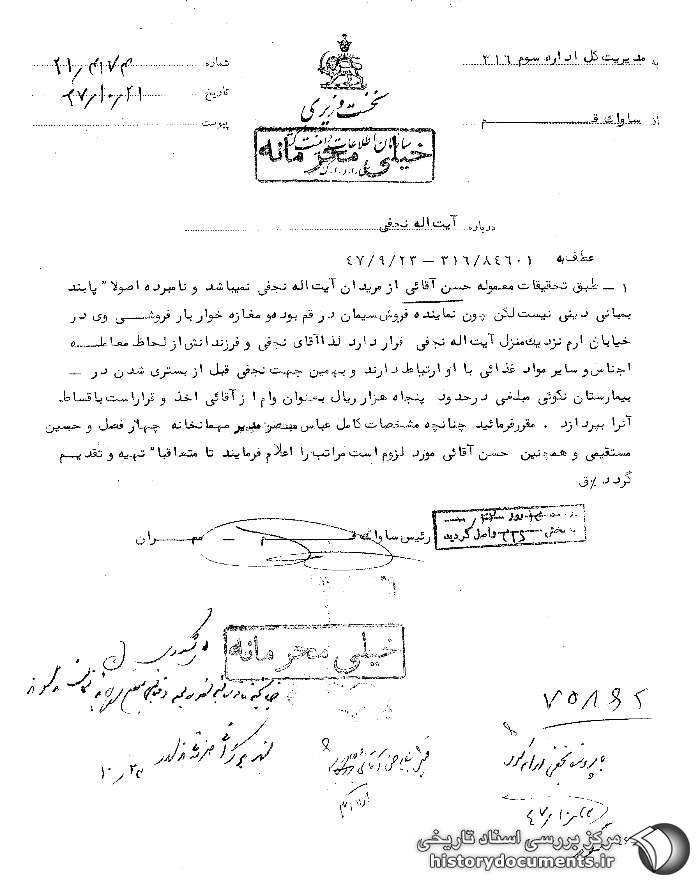 به مدیریت کل اداره سوم ۳۱۶
از ساواک قم
شماره ۲۱۰۴۱۷۴
تاریخ ۴۷/۱۰/۲۱
پیوست
نخست وزیری
سازمان اطلاعات و امنیت کشور
خیلی محرمانه
درباره آیت اله نجفی
عطف به ۳۱۶/۸۴۶۰۱ – ۴۷/۹/۲۳
۱ – طبق تحقیقات معموله حسن آقائی از مریدان آیت اله نجفی نمیباشد و نامبرده اصولا" پابند
بمبانی دینی نیست لکن چون نماینده فروش سیمان در قم بوده و مغازه خواربار فروشی وی در
خیابان ارم نزدیک منزل آیت اله نجفی قرار دارد لذا آقای نجفی و فرزندانش از لحاظ معامله
اجناس و سایر مواد غذائی با او ارتباط دارند و بهمین جهت نجفی قبل از بستری شدن در –
بیمارستان نکوئی مبلغی در حدود پنجاه هزار ریال بعنوان وام از آقائی اخذ و قرار است باقساط
آنرا بپردازد . مقرر فرمائید چنانچه مشخصات کامل عباس مبصر مدیر مهمانخانه چهار فصل و حسین
مستقیمی و همچنین حسن آقائی مورد لزوم است مراتب را اعلام فرمایند تا متعاقبا" تهیه و تقدیم
گردد ق
رئیس ساواک قم – مهران
به بخش ۳۱۶ واصل گردید
خیلی محرمانه
۷۵۸۶۲
۴۷/۱۰/
مرکز بررسی اسناد تاریخی
historydocuments.ir